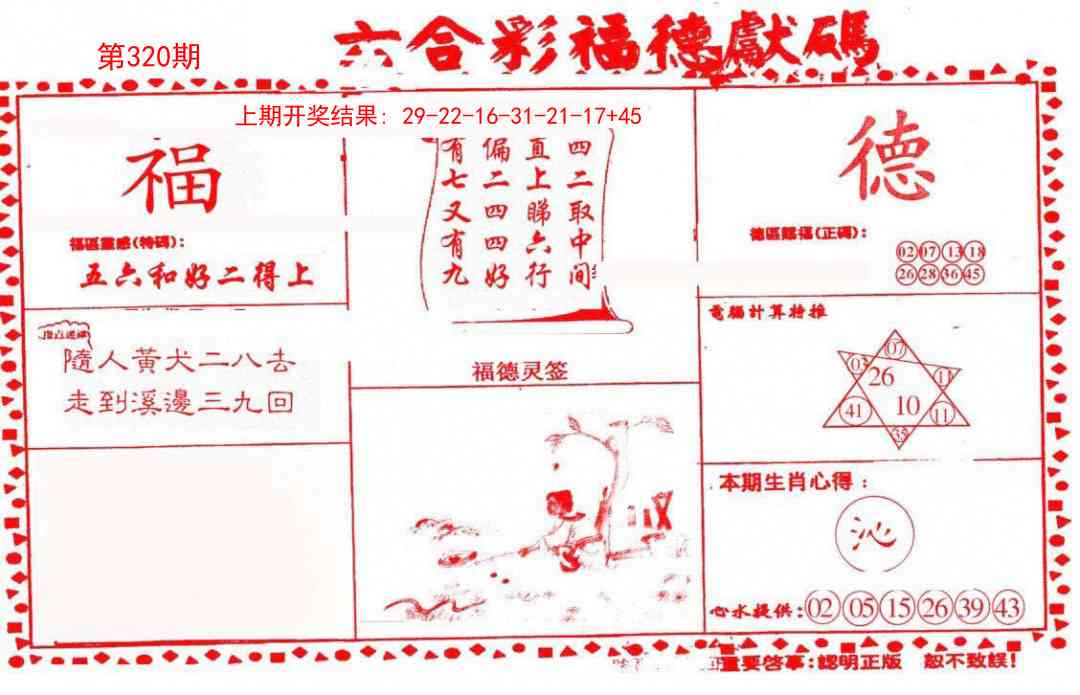 六合彩福德獻碼
第320期
上期开奖结果: 29-22-16-31-21-17+45
福
福區靈感(特碼):
五六和好二得上
四二取中间
直上睇六行
偏二四四好
有七又有九
德
德區賜福(正碼):
02 07 13 18
26 28 36 45
隨人黃犬二八去
走到溪邊三九回
福德灵签
電腦計算特推
07
03 26 11
41 10 11
35
本期生肖心得:
沁
心水提供: 02 05 15 26 39 43
重要啓事:認明正版 恕不致誤!